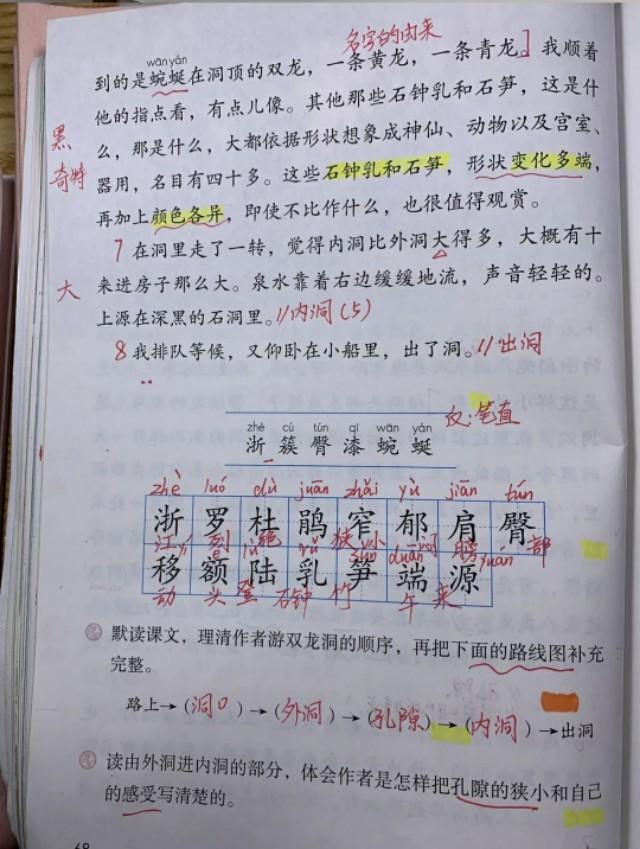 名字的由来
wān yán
到的是蜿蜒在洞顶的双龙，一条黄龙，一条青龙。]我顺着
他的指点看，有点儿像。其他那些石钟乳和石笋，这是什
黑 么，那是什么，大都依据形状想象成神仙、动物以及宫室、
奇特 器用，名目有四十多。这些石钟乳和石笋，形状变化多端，
再加上颜色各异，即使不比作什么，也很值得观赏。
7 在洞里走了一转，觉得内洞比外洞大得多，大概有十
大 来进房子那么大。泉水靠着右边缓缓地流，声音轻轻的。
上源在深黑的石洞里。//内洞(5)
8 我排队等候，又仰卧在小船里，出了洞。//出洞
反:笔直
zhè cù tún qī wān yán
浙 簇 臀 漆 蜿 蜒
zhè luó dù juān zhǎi yù jiān tún
浙 罗 杜 鹃 窄 郁 肩 臀
江 列 绝 狭小 闷 膀 部
é lù rǔ sǔn duān yuán
移 额 陆 乳 笋 端 源
动 头 登 石钟 竹 午 来
默读课文，理清作者游双龙洞的顺序，再把下面的路线图补充
完整。
路上→(洞口)→(外洞)→(孔隙)→(内洞)→出洞
读由外洞进内洞的部分，体会作者是怎样把孔隙的狭小和自己
的感受写清楚的。
68